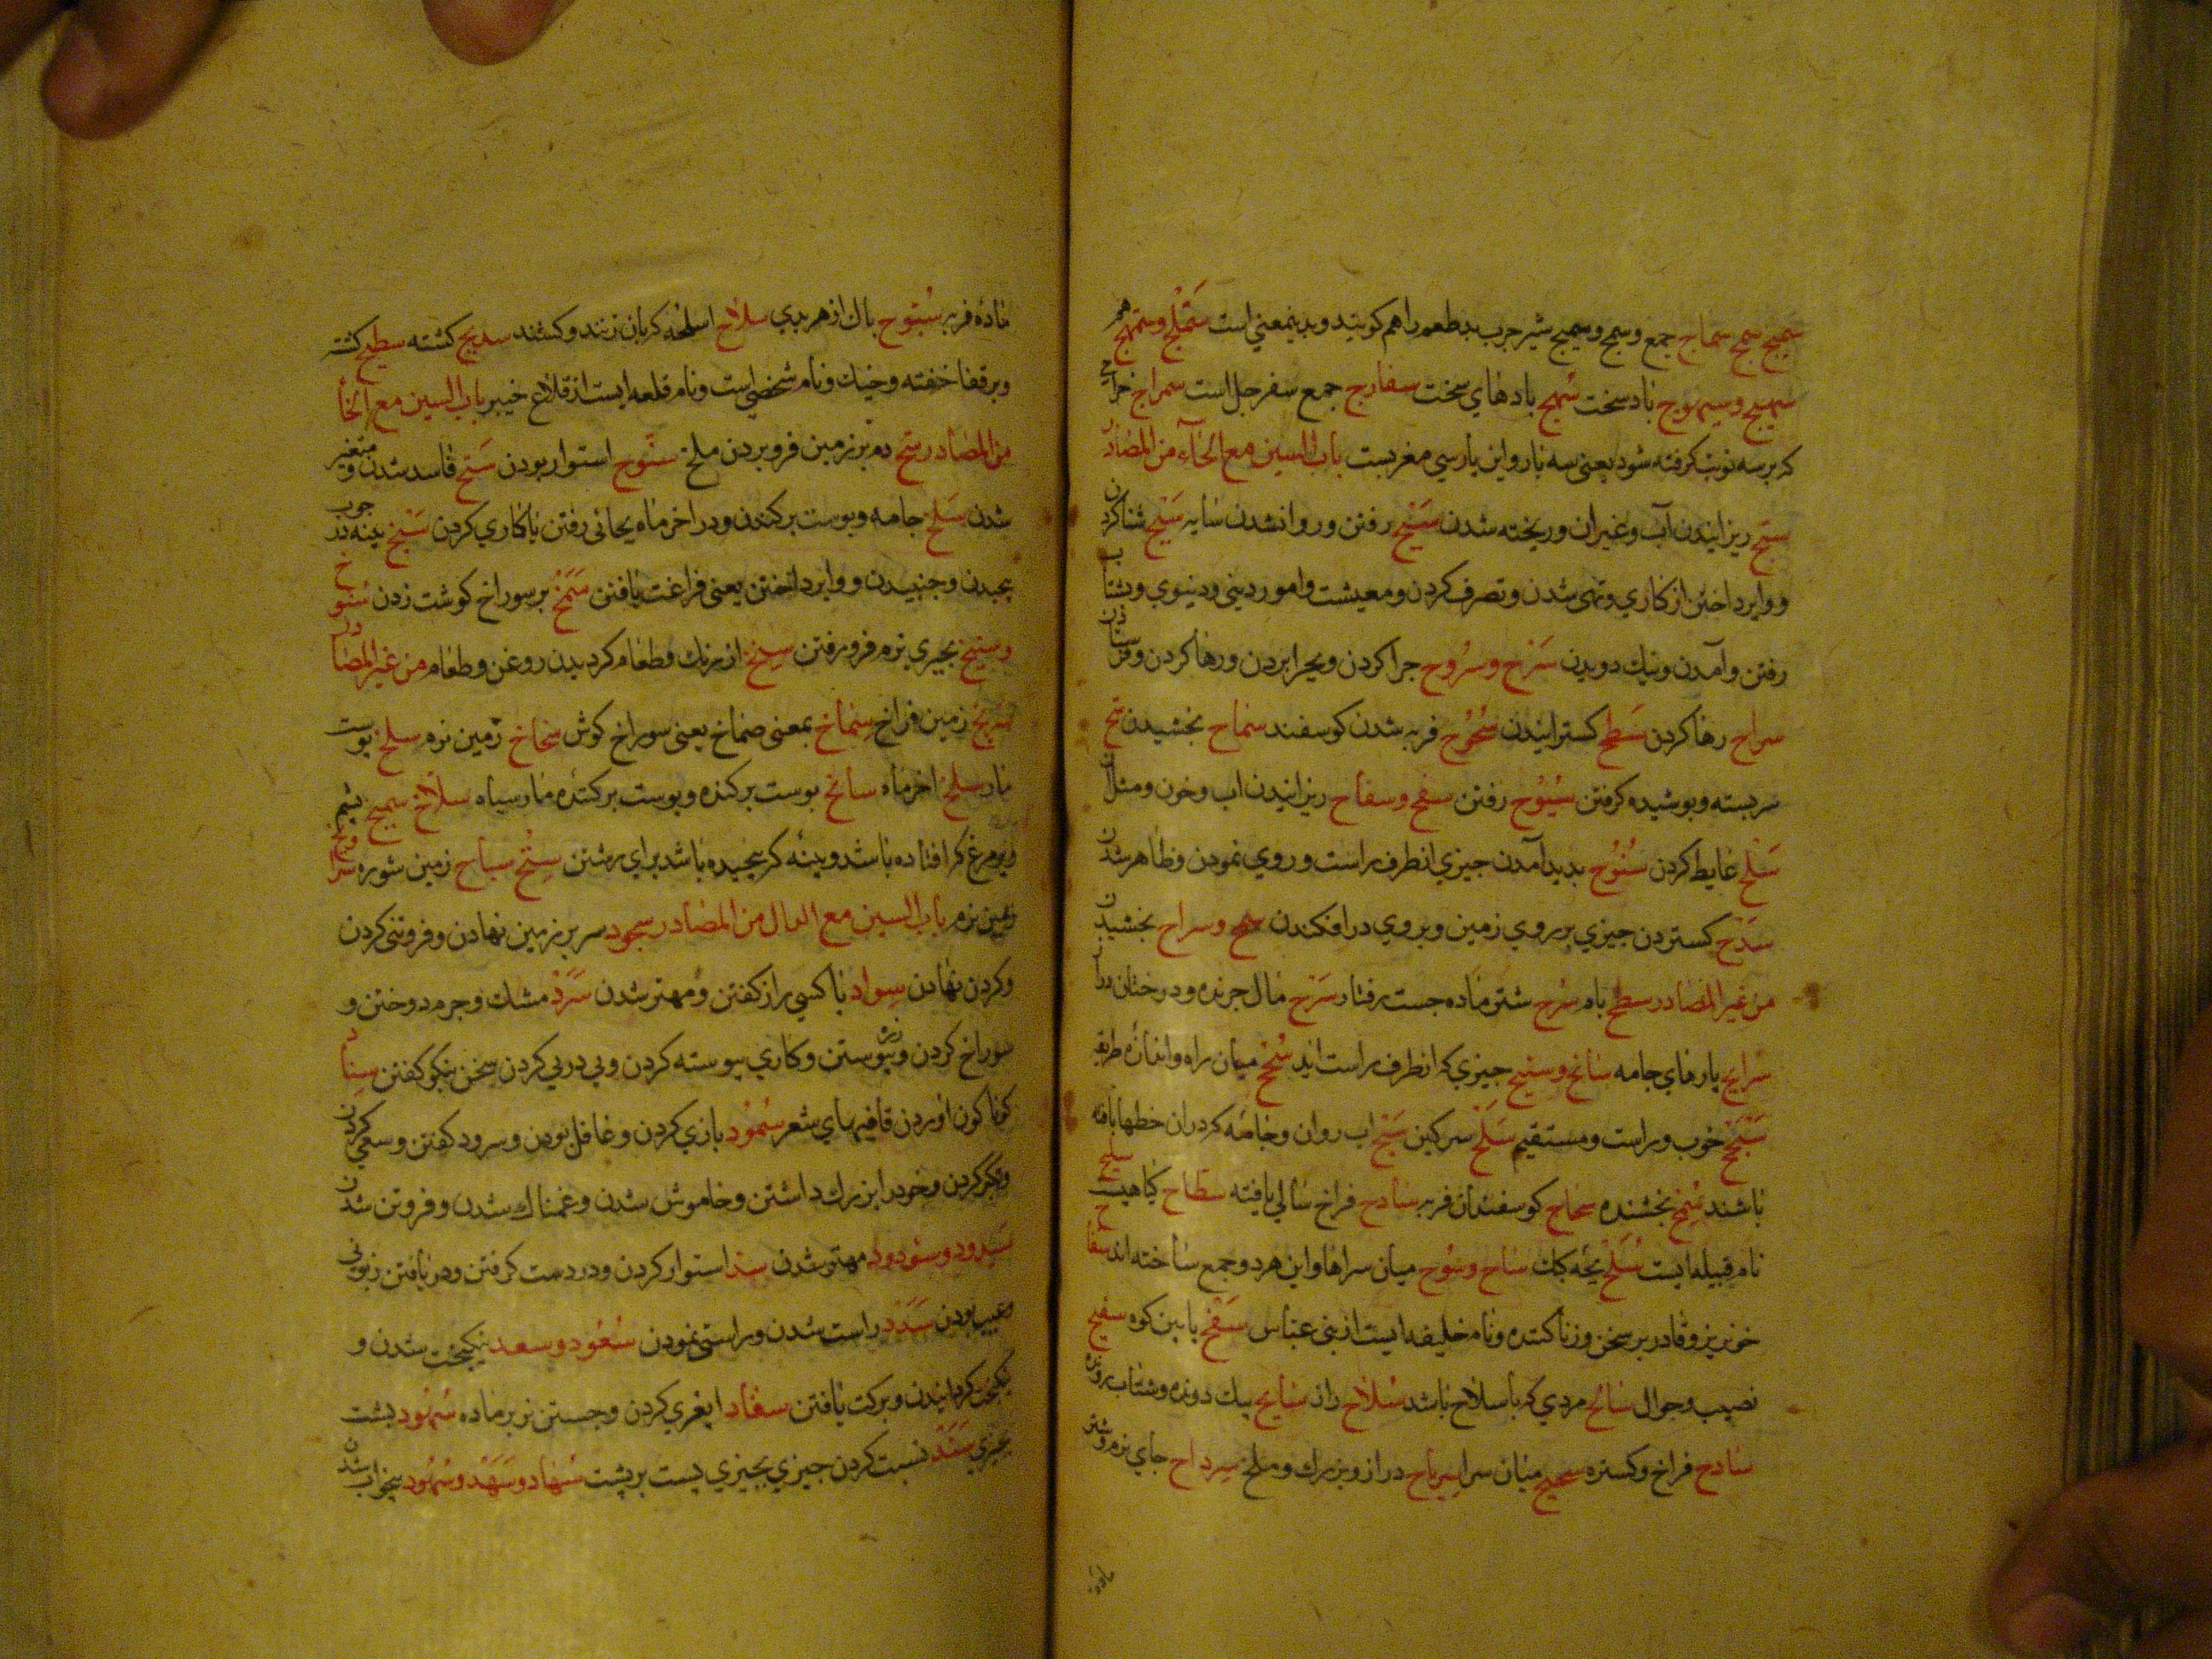 سمیج سمج سماج جمع و سمج و سمیج شیر چرب بدطعم را هم کویند و بدینمعنی است سملج و سمهج هم
سهیج و سیهوج باد سخت سهج بادهای سخت سفارج جمع سفرجل است سمراج خراج
که برسه نوبت کرفته شود یعنی سه بار و این پارسی معربست باب السین مع الحآء من المصادر
سح ریزانیدن آب و غیر آن و ریخته شدن سیح رفتن و روانشدن سایه سبح شنا کردن
و واپرداختن از کاری و تهی شدن و تصرف کردن و معیشت و امور دینی و دنیوی و بشتاب
رفتن و آمدن و نیک دویدن سرح و سروح چرا کردن و بچرا بردن و رها کردن و فرستادن
سراح رها کردن سطح کسترانیدن سحوح فربه شدن کوسفند سماح بخشیدن
سربسته و بوشیده کرفتن سیوح رفتن سفح و سفاح ریزانیدن اب و خون و مثل آن
سلح غایط کردن سنوح بدید آمدن چیزی از طرف راست و روی نمودن و ظاهر شدن
سدح کستردن چیزی بر روی زمین و بروی در افکندن سمح و سراح بخشیدن
من غیر المصادر سطح بام سرح شتر ماده جست رفتار سرح مال چرنده و درختان دراز
سرایح پارهای جامه سانح و سنیح چیزی که از طرف راست اید سنح میان راه و اندازه طریقه
سجح خوب و راست و مستقیم سلح سرکین سیح اب روان و جامه که در ان خطها بافته
باشند سمح بخشنده سحاح کوسفندان فربه سادح فراخ سالی یافته سطاح کیاهیست سلیح
نام قبیله ایست سلح بچه کبک ساح و سوح میان سراها و این هر دو جمع ساخته اند سفاح
خونریز و قادر بر سخن و زنا کننده و نام خلیفه ایست از بنی عباس سفح پایین کوه سفیح
نصیب و جوال سالح مردی که با سلاح باشد سلاح راز سابح نیک دونده و شتاب رونده
سادح فراخ و کسترده سحیح میان سرا سرباح دراز و بزرک و ملخ سرداح جای نرم و شتر
ماده
مادهٔ فربه سبوح باک از هر بدی سلاح اسلحه که بان زنند و کشند سدیح کشته سطیح کشته
و بر قفا خفته و خیک و نام شخصی است و نام قلعه ایست از قلاع خیبر باب السین مع الخآ
من المصادر سخ دم بر زمین فرو بردن ملخ سنوخ استوار بودن سنخ فاسد شدن و متغیر
شدن سلخ جامه و پوست برکندن و در اخر ماه بجائی رفتن یا کاری کردن سبخ پنبه در چوب
پیچیدن و جنبیدن و واپرداختن یعنی فراغت یافتن سمخ بر سوراخ کوشت زدن سنوخ
و سیخ بچیزی نرم فرو رفتن سنخ از رنک و طعام کردیدن روغن و طعام من غیر المصادر
سربخ زمین فراخ سماخ بمعنی صماخ یعنی سوراخ کوش سخاخ زمین نرم سلخ پوست
مار سلخ اخر ماه سالخ پوست برکنده و پوست برکننده مار سیاه سلاخ سبیخ پشم
و پر مرغ که افتاده باشد و پنبه که پیچیده باشد برای رشتن سنخ سباخ زمین شوره
زمین نرم باب السین مع الدال من المصادر سجود سر بر زمین نهادن و فروتنی کردن
و کردن نهادن سواد با کسی راز کفتن و مهتر شدن سرد مشک و چرم دوختن و
سوراخ کردن و زره پیوستن و کاری پیوسته کردن و پی در پی کردن سخن نیکو کفتن سناد
کوناکون اوردن قافیهای شعر سمود بازی کردن و غافل بودن و سرود کفتن و سعی کردن
و تکبر کردن و خود را بزرک داشتن و خاموش شدن و غمناک شدن و فروتن شدن
سیدود و سودود مهتر شدن سد استوار کردن و در دست کرفتن و دریافتن زبونی
و عیب بودن سدد راست شدن و راستی نمودن سعود و سعد نیکبخت شدن و
نیکبخت کردانیدن و برکت یافتن سفاد ایغری کردن و جستن نر بر ماده سنود پشت
بچیزی سند نسبت کردن چیزی بچیزی پست بر پشت سهاد و سهد و سهود بیخواب شدن